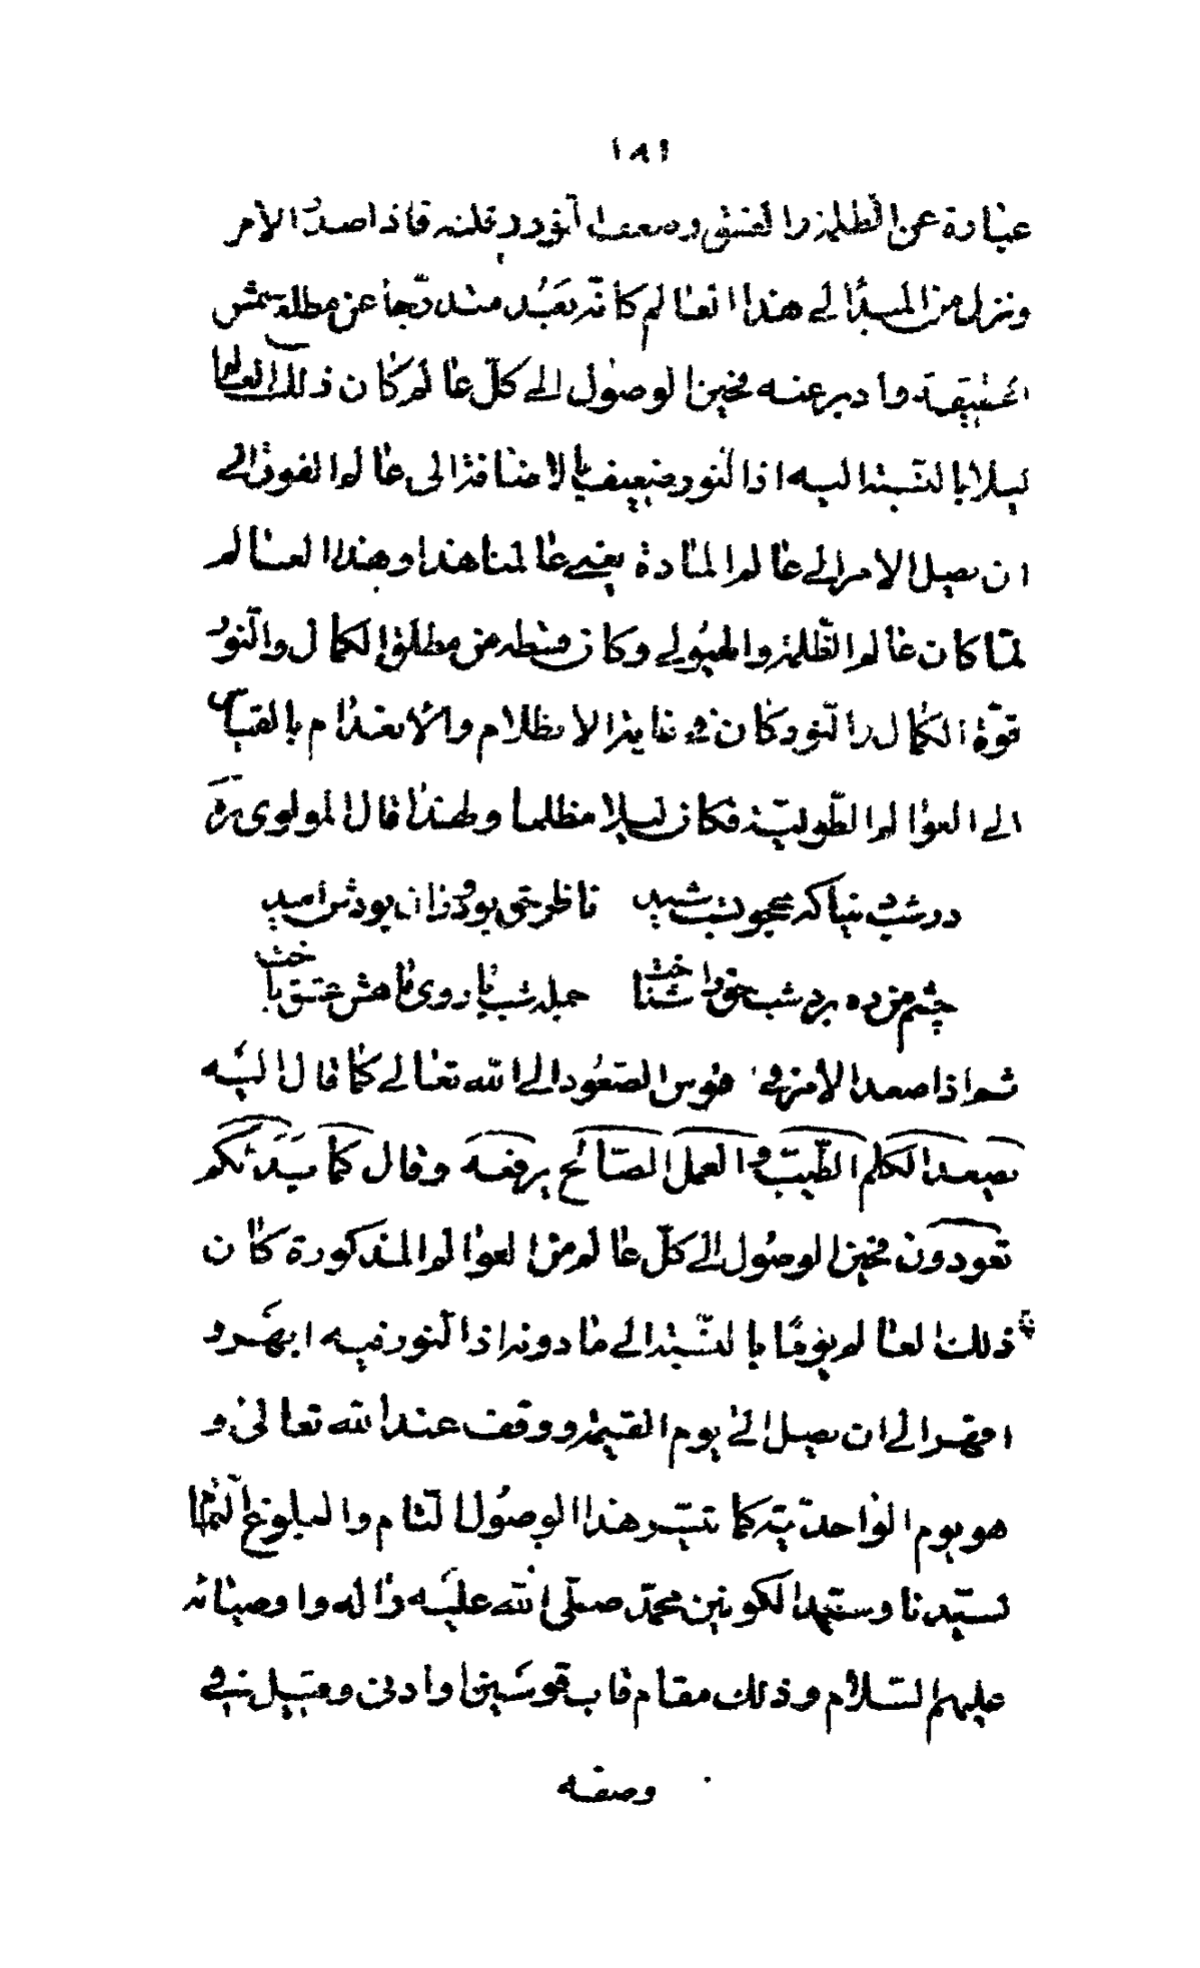 ١٨١
عبارة عن الظلمة والغسق وضعف النور وقلته فاذا صدر الأمر
ونزل من المبدأ الى هذا العالم كانه بعد متدرجا عن مطلع شمس
الحقيقة وادبر عنه فحين الوصول الى كل عالم كان ذلك العالم
ليلا بالنسبة اليه اذ النور ضعيف بالاضافة الى عالم الفوق الى
ان يصل الامر الى عالم المادة يعني عالمنا هذا وهذا العالم
لما كان عالم الظلمة والهيولى وكان قسطه من مطلق الكمال والنور
قوة الكمال والنور وكان في غاية الاظلام والانعدام بالقياس
الى العوالم الطولية فكان ليلا مظلما ولهذا قال المولوى ره
در شب دنيا كه محجوبست شيد ناظر حق بود وزان بودش اميد
چشم من ده برد شب حق را شناخت جمله شب با روى ماهش عشق باخت
ثم اذا صعد الأمر في قوس الصعود الى الله تعالى كما قال اليه
يصعد الكلم الطيب والعمل الصالح يرفعه وقال كما بدئكم
تعودون فحين الوصول الى كل عالم من العوالم المذكورة كان
ذلك العالم يوما بالنسبة الى ما دونه اذ النور فيه ابهر و
اقهر الى ان يصل الى يوم القيمة ووقف عند الله تعالى و
هو يوم الواحدية كما تيسر هذا الوصول التام والبلوغ التمام
لسيدنا وسيد الكونين محمد صلى الله عليه واله واوصيائه
عليهم السلام وذلك مقام قاب قوسين او ادنى وقيل في
وصفه